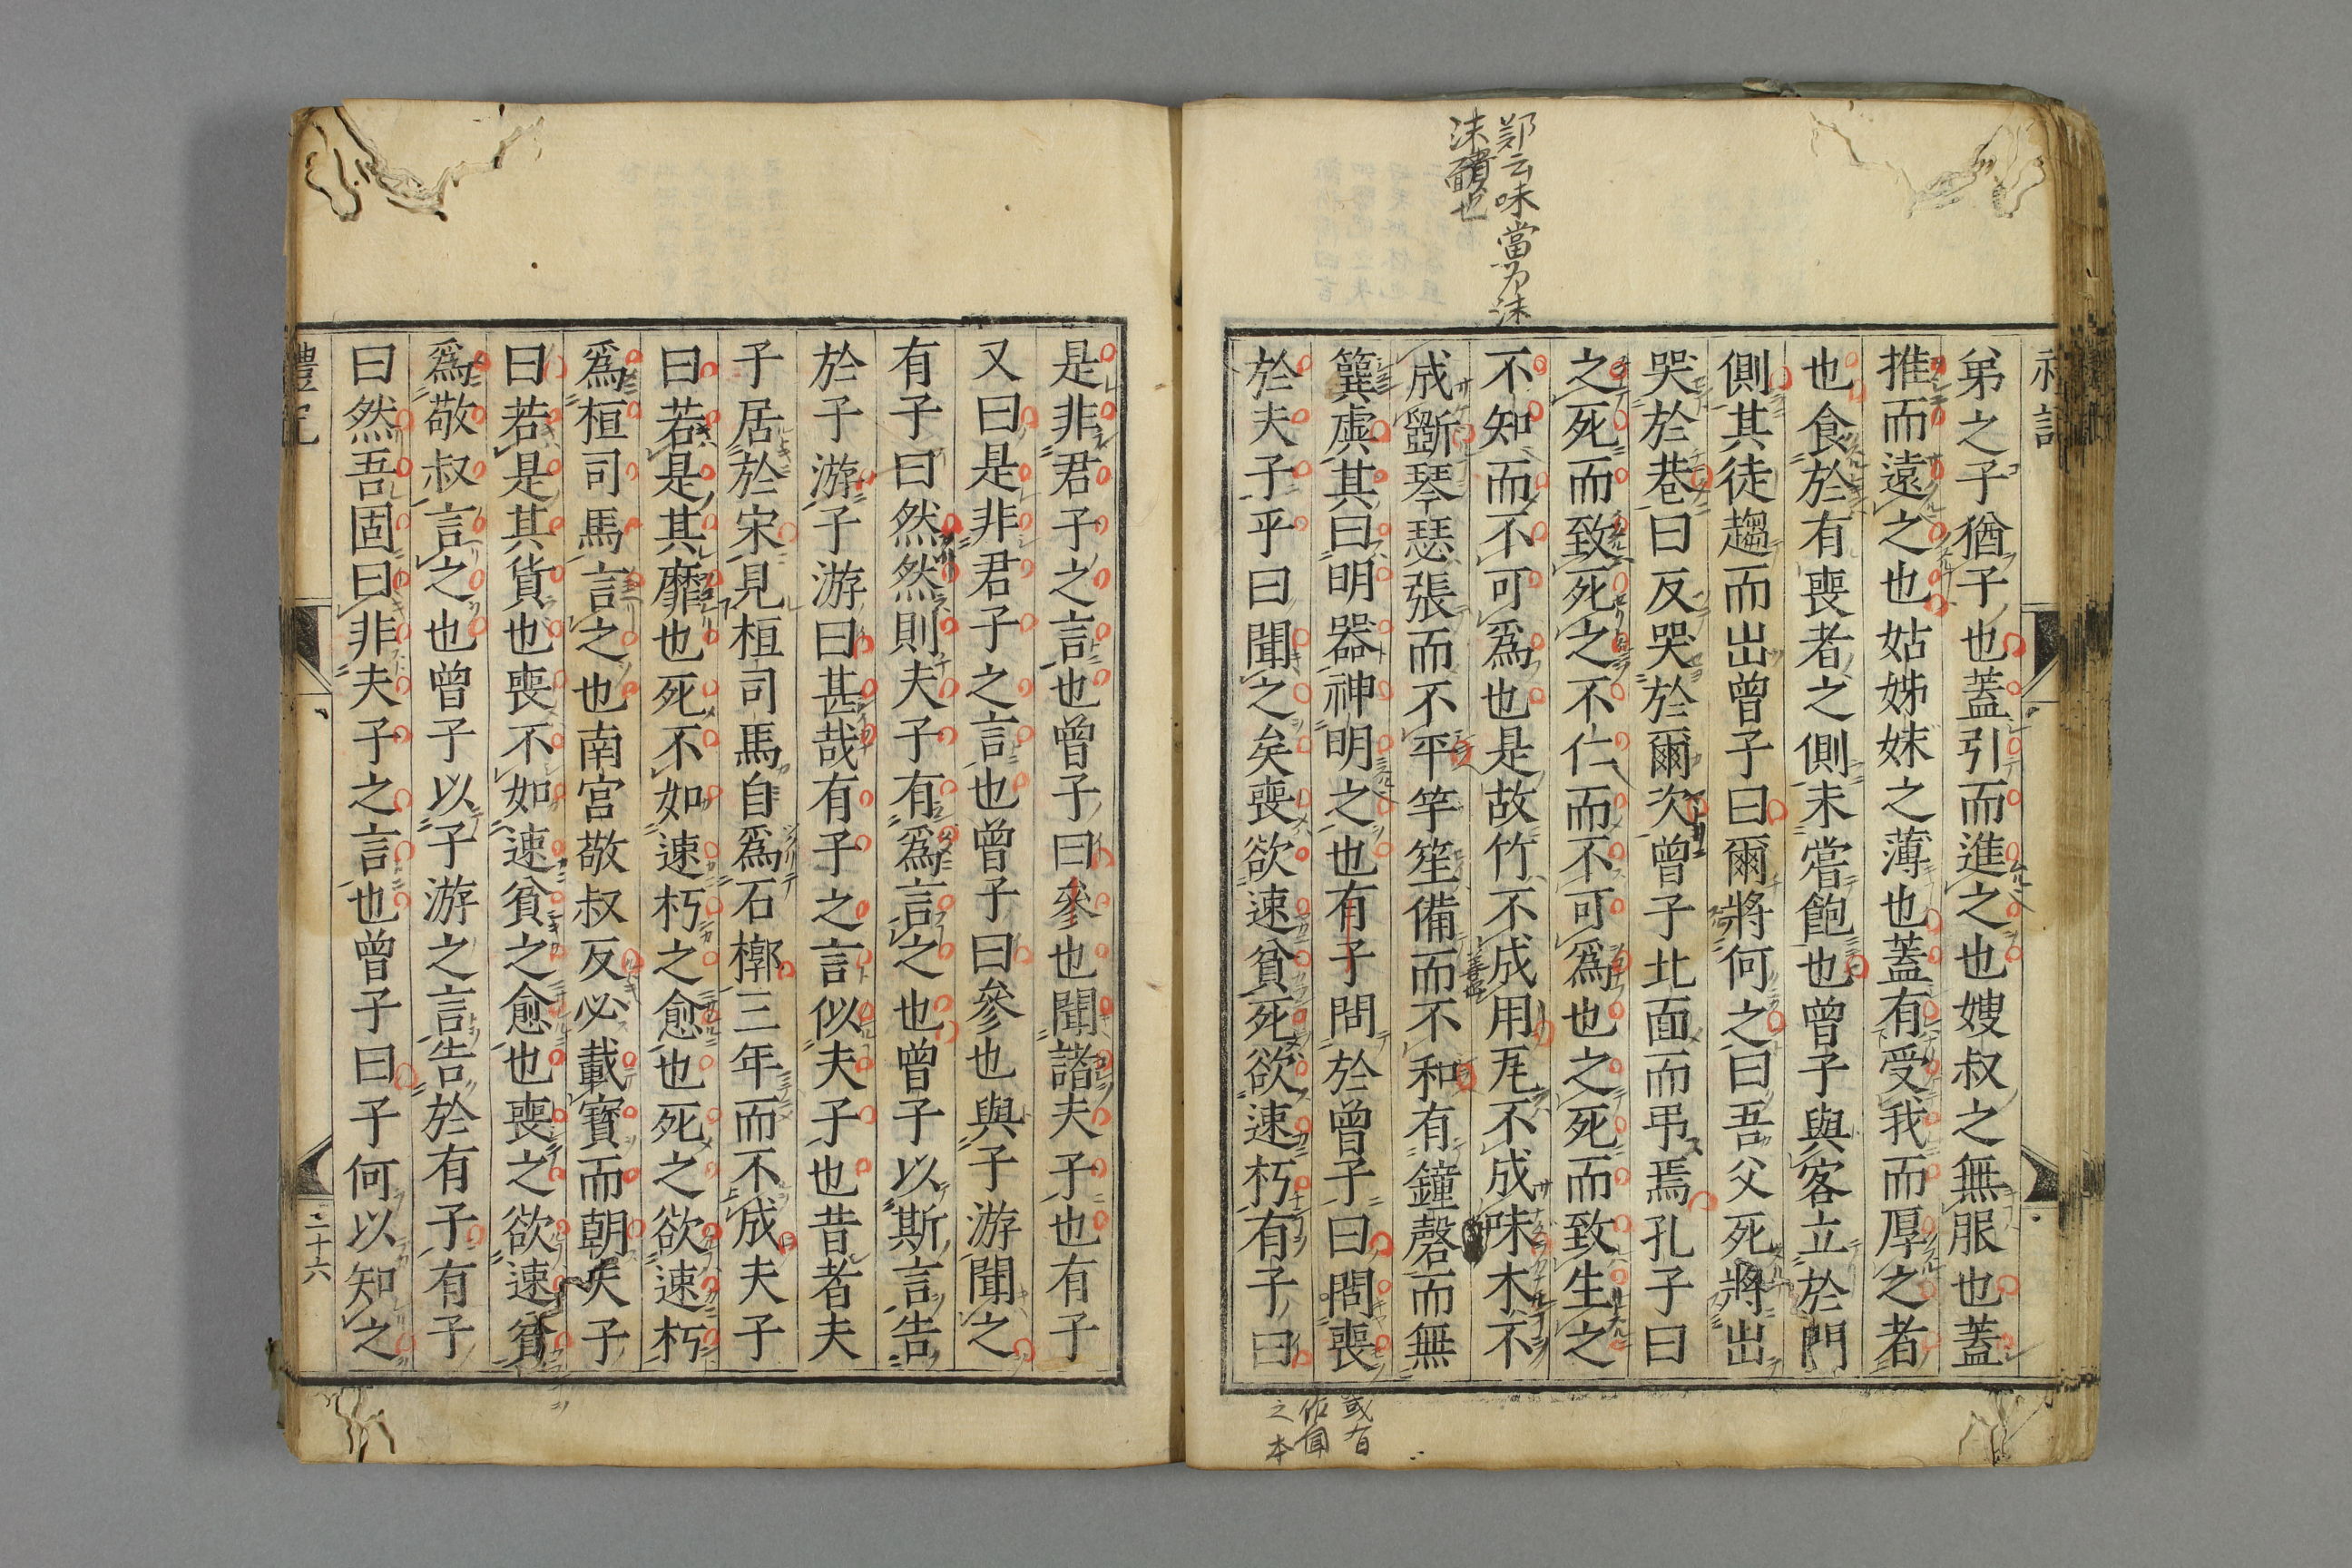 鄭云味當爲沬
沬靧也
弟之子猶子也蓋引而進之也嫂叔之無服也蓋
推而遠之也姑姊妹之薄也蓋有受我而厚之者
也食於有喪者之側未嘗飽也曾子與客立於門
側其徒趨而出曾子曰爾將何之曰吾父死將出
哭於巷曰反哭於爾次曾子北面而弔焉孔子曰
之死而致死之不仁而不可爲也之死而致生之
不知而不可爲也是故竹不成用瓦不成味木不
成斲琴瑟張而不平竽笙備而不和有鐘磬而無
簨虡其曰明器神明之也有子問於曾子曰問喪
於夫子乎曰聞之矣喪欲速貧死欲速朽有子曰
或有
作聞
之本
是非君子之言也曾子曰參也聞諸夫子也有子
又曰是非君子之言也曾子曰參也與子游聞之
有子曰然然則夫子有爲言之也曾子以斯言告
於子游子游曰甚哉有子之言似夫子也昔者夫
子居於宋見桓司馬自爲石槨三年而不成夫子
曰若是其靡也死不如速朽之愈也死之欲速朽
爲桓司馬言之也南宮敬叔反必載寶而朝夫子
曰若是其貨也喪不如速貧之愈也喪之欲速貧
爲敬叔言之也曾子以子游之言告於有子有子
曰然吾固曰非夫子之言也曾子曰子何以知之
禮記
二十六